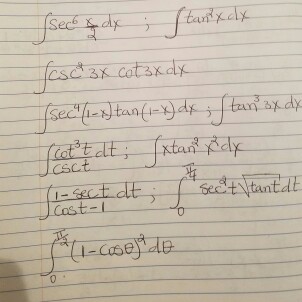 ∫sec⁶ x/2 dx ; ∫tan²x dx
∫csc⁴ 3x cot3x dx
∫sec⁴(1-x)tan(1-x)dx ; ∫tan³ 3x dx
∫cot³t/csct dt ; ∫xtan² x² dx
∫1-sect/cost-1 dt ; ∫₀^(π/4) sec²t√tant dt
∫₀^(π/2) (1-cosθ)² dθ